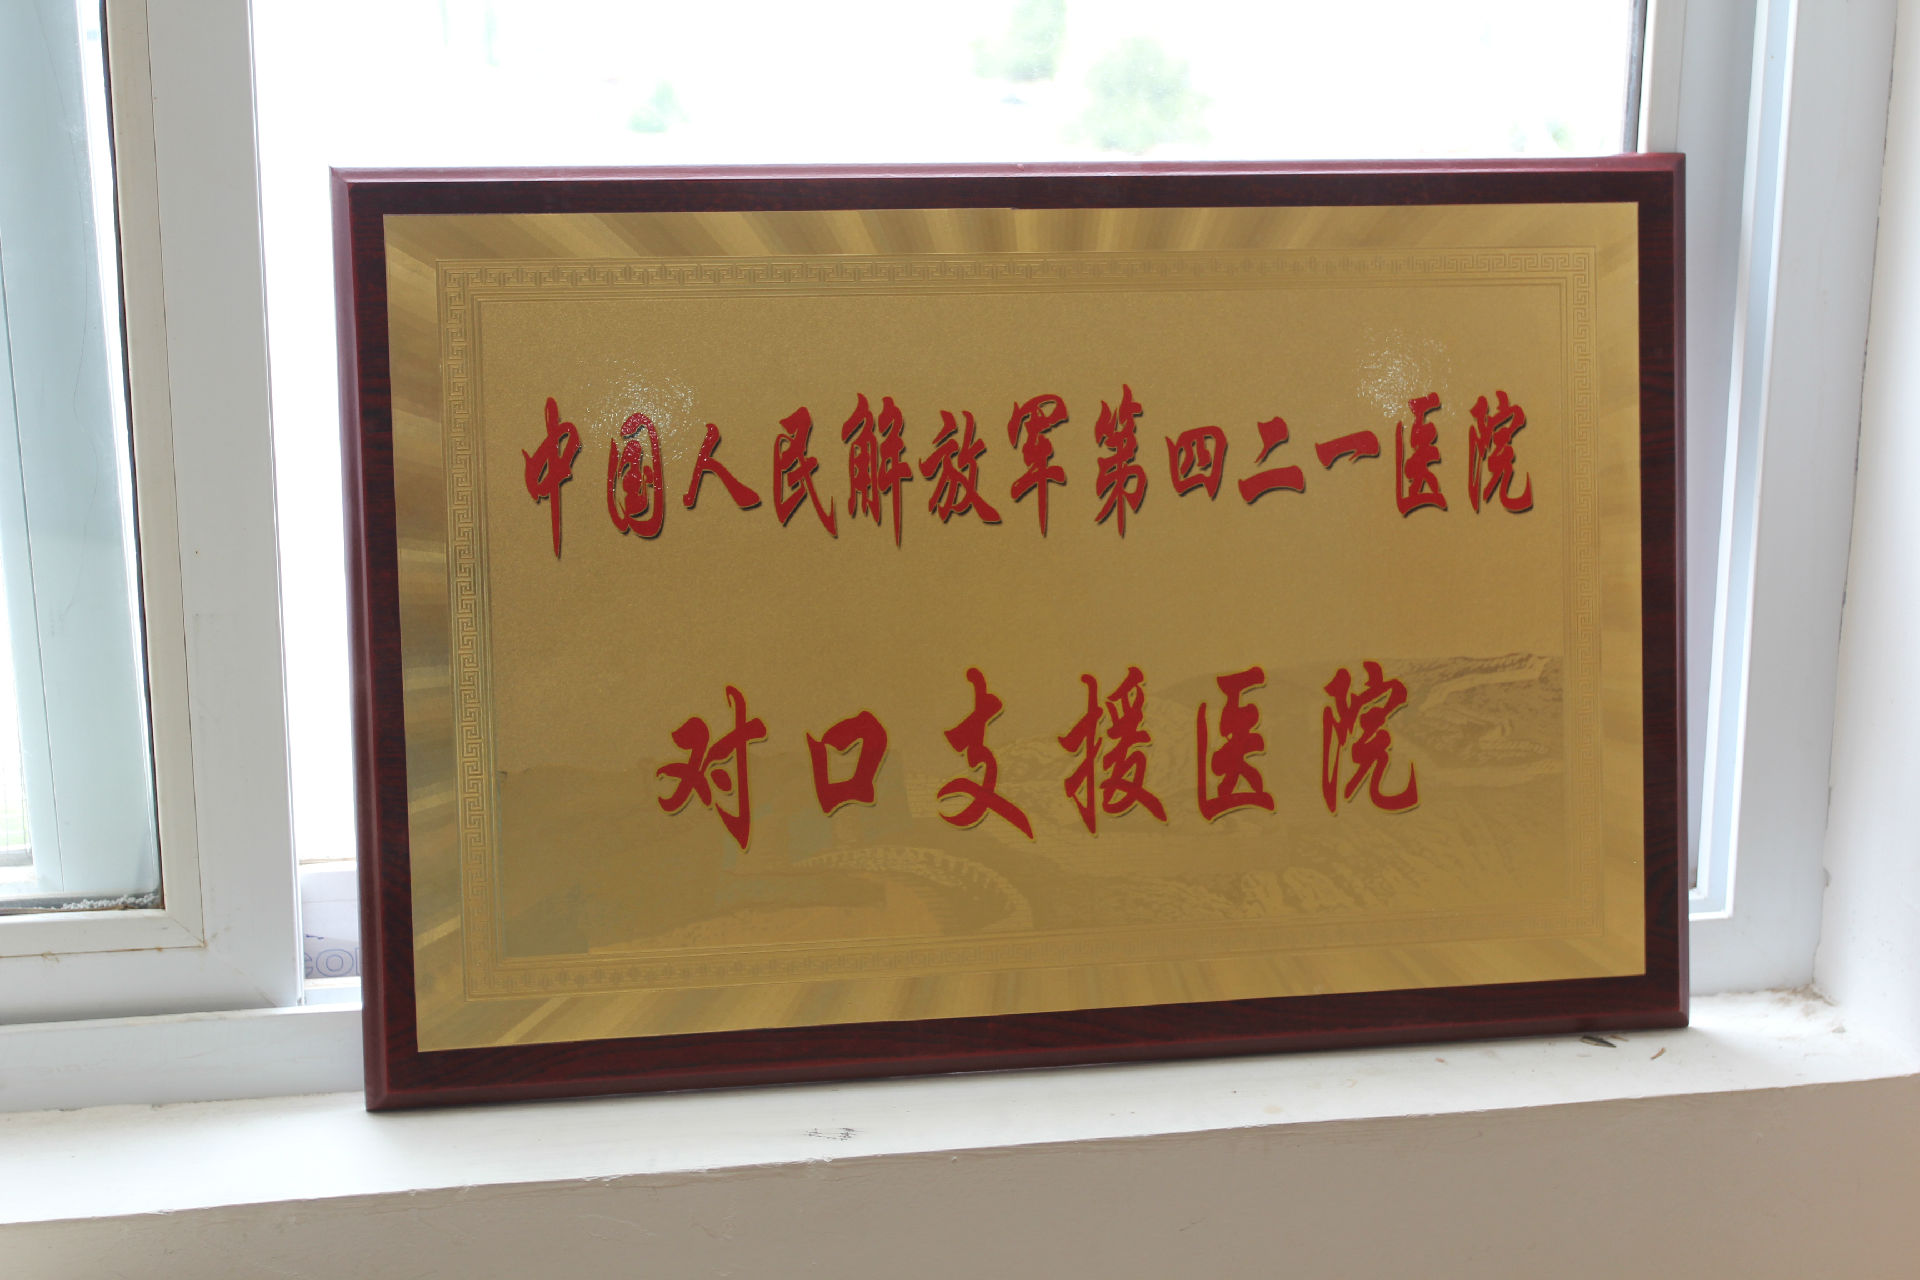 中国人民解放军第四二一医院
对口支援医院